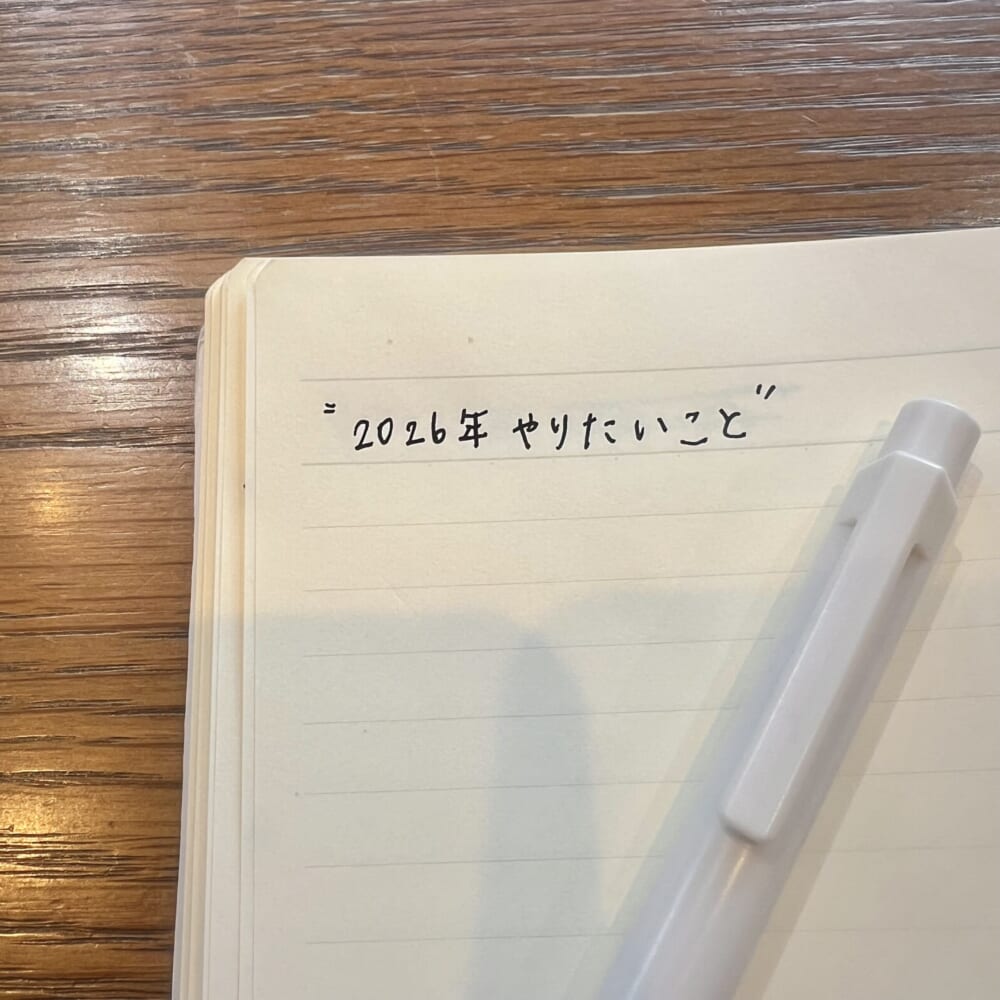 "2026年 やりたいこと"